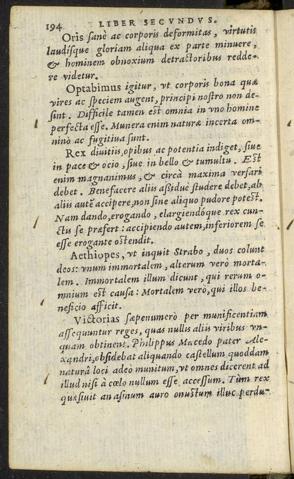 194 LIBER SECVNDVS.
Oris sanè ac corporis deformitas, virtutis
laudisque gloriam aliqua ex parte minuere,
& hominem obnoxium detractoribus redde-
re videtur.
Optabimus igitur, vt corporis bona quæ
vires ac speciem augent, principi nostro non de-
sint. Difficile tamen est omnia in vno homine
perfecta esse. Munera enim naturæ incerta om-
ninò ac fugitiua sunt.
Rex diuitiis, opibus ac potentia indiget, siue
in pace & ocio, siue in bello & tumultu. Est
enim magnanimus, & circà maxima versari
debet. Benefacere aliis assiduè studere debet, ab
aliis autē accipere, non sine aliquo pudore potest.
Nam dando, erogando, elargiendóque rex cun-
ctis se prefert: accipiendo autem, inferiorem se
esse erogante ostendit.
Aethiopes, vt inquit Strabo, duos colunt
deos: vnum immortalem, alterum verò morta-
lem. Immortalem illum dicunt, qui rerum o-
mnium est causa: Mortalem verò, qui illos be-
neficio afficit.
Victorias sæpenumerò per munificentiam
assequuntur reges, quas nullis aliis viribus vn-
quam obtinent. Philippus Macedo pater Ale-
xandri, obsidebat aliquando castellum quoddam
naturâ loci adeò munitum, vt omnes dicerent ad
illud nisi à cœlo nullum esse accessum. Tùm rex
quæsiuit an asinum auro onustum illuc perdu-